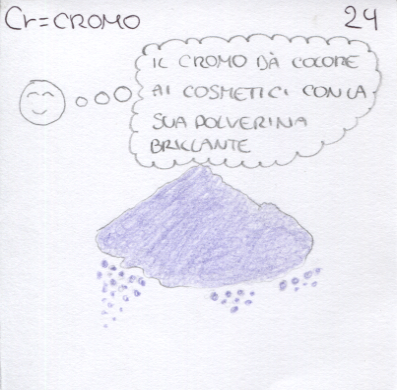 Cr=CROMO 24
IL CROMO DÀ COLORE
AI COSMETICI CON LA
SUA POLVERINA
BRILLANTE